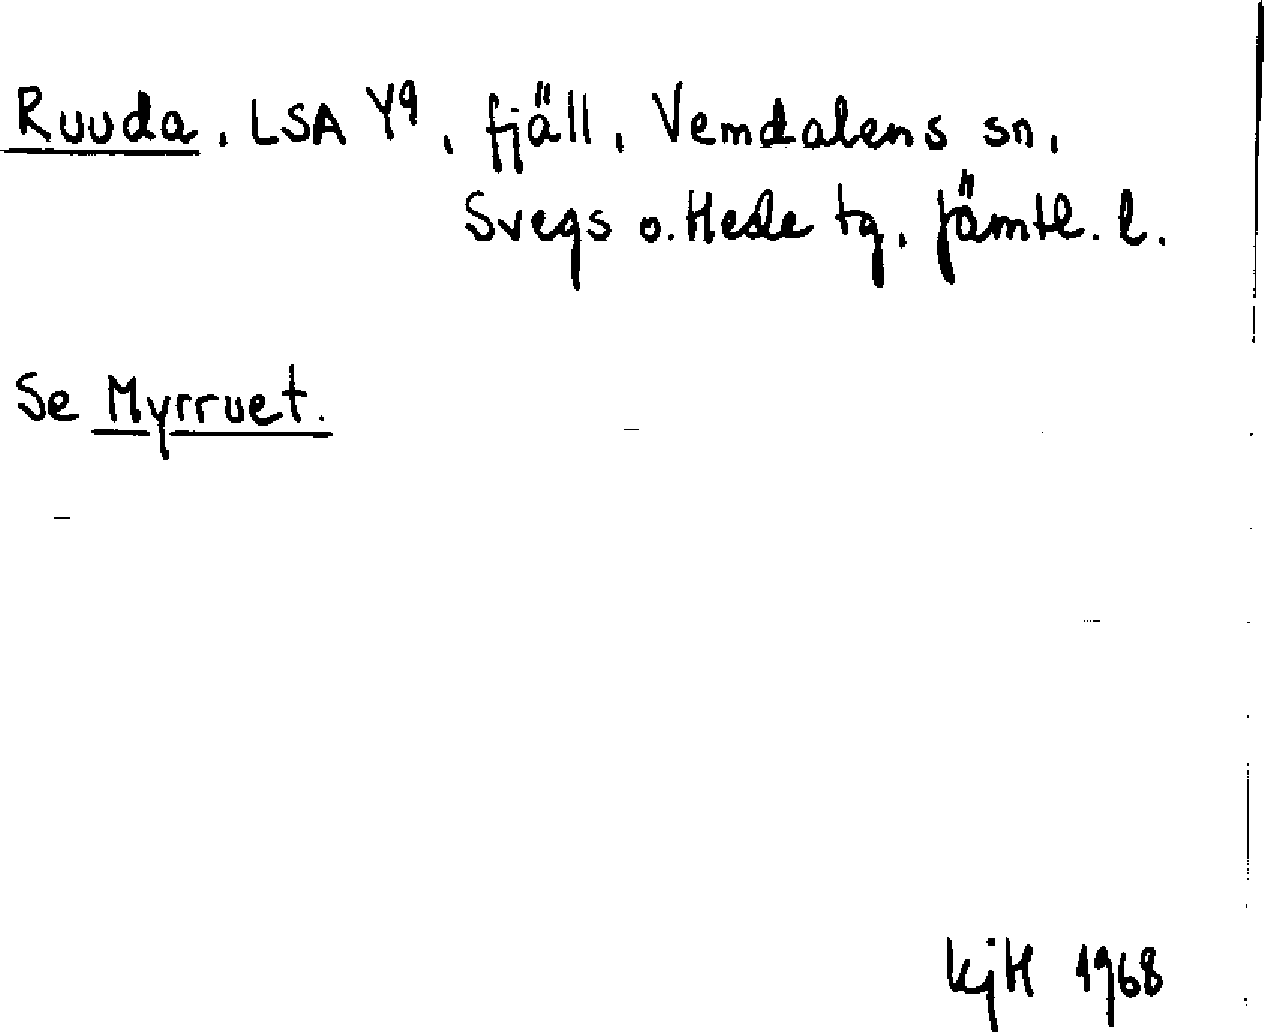 Ruuda, LSA Y9, fjäll, Vemdalens sn,
Svegs o. Hede tg, Jämtl. l.
Se Myrruet.
KJH 1968